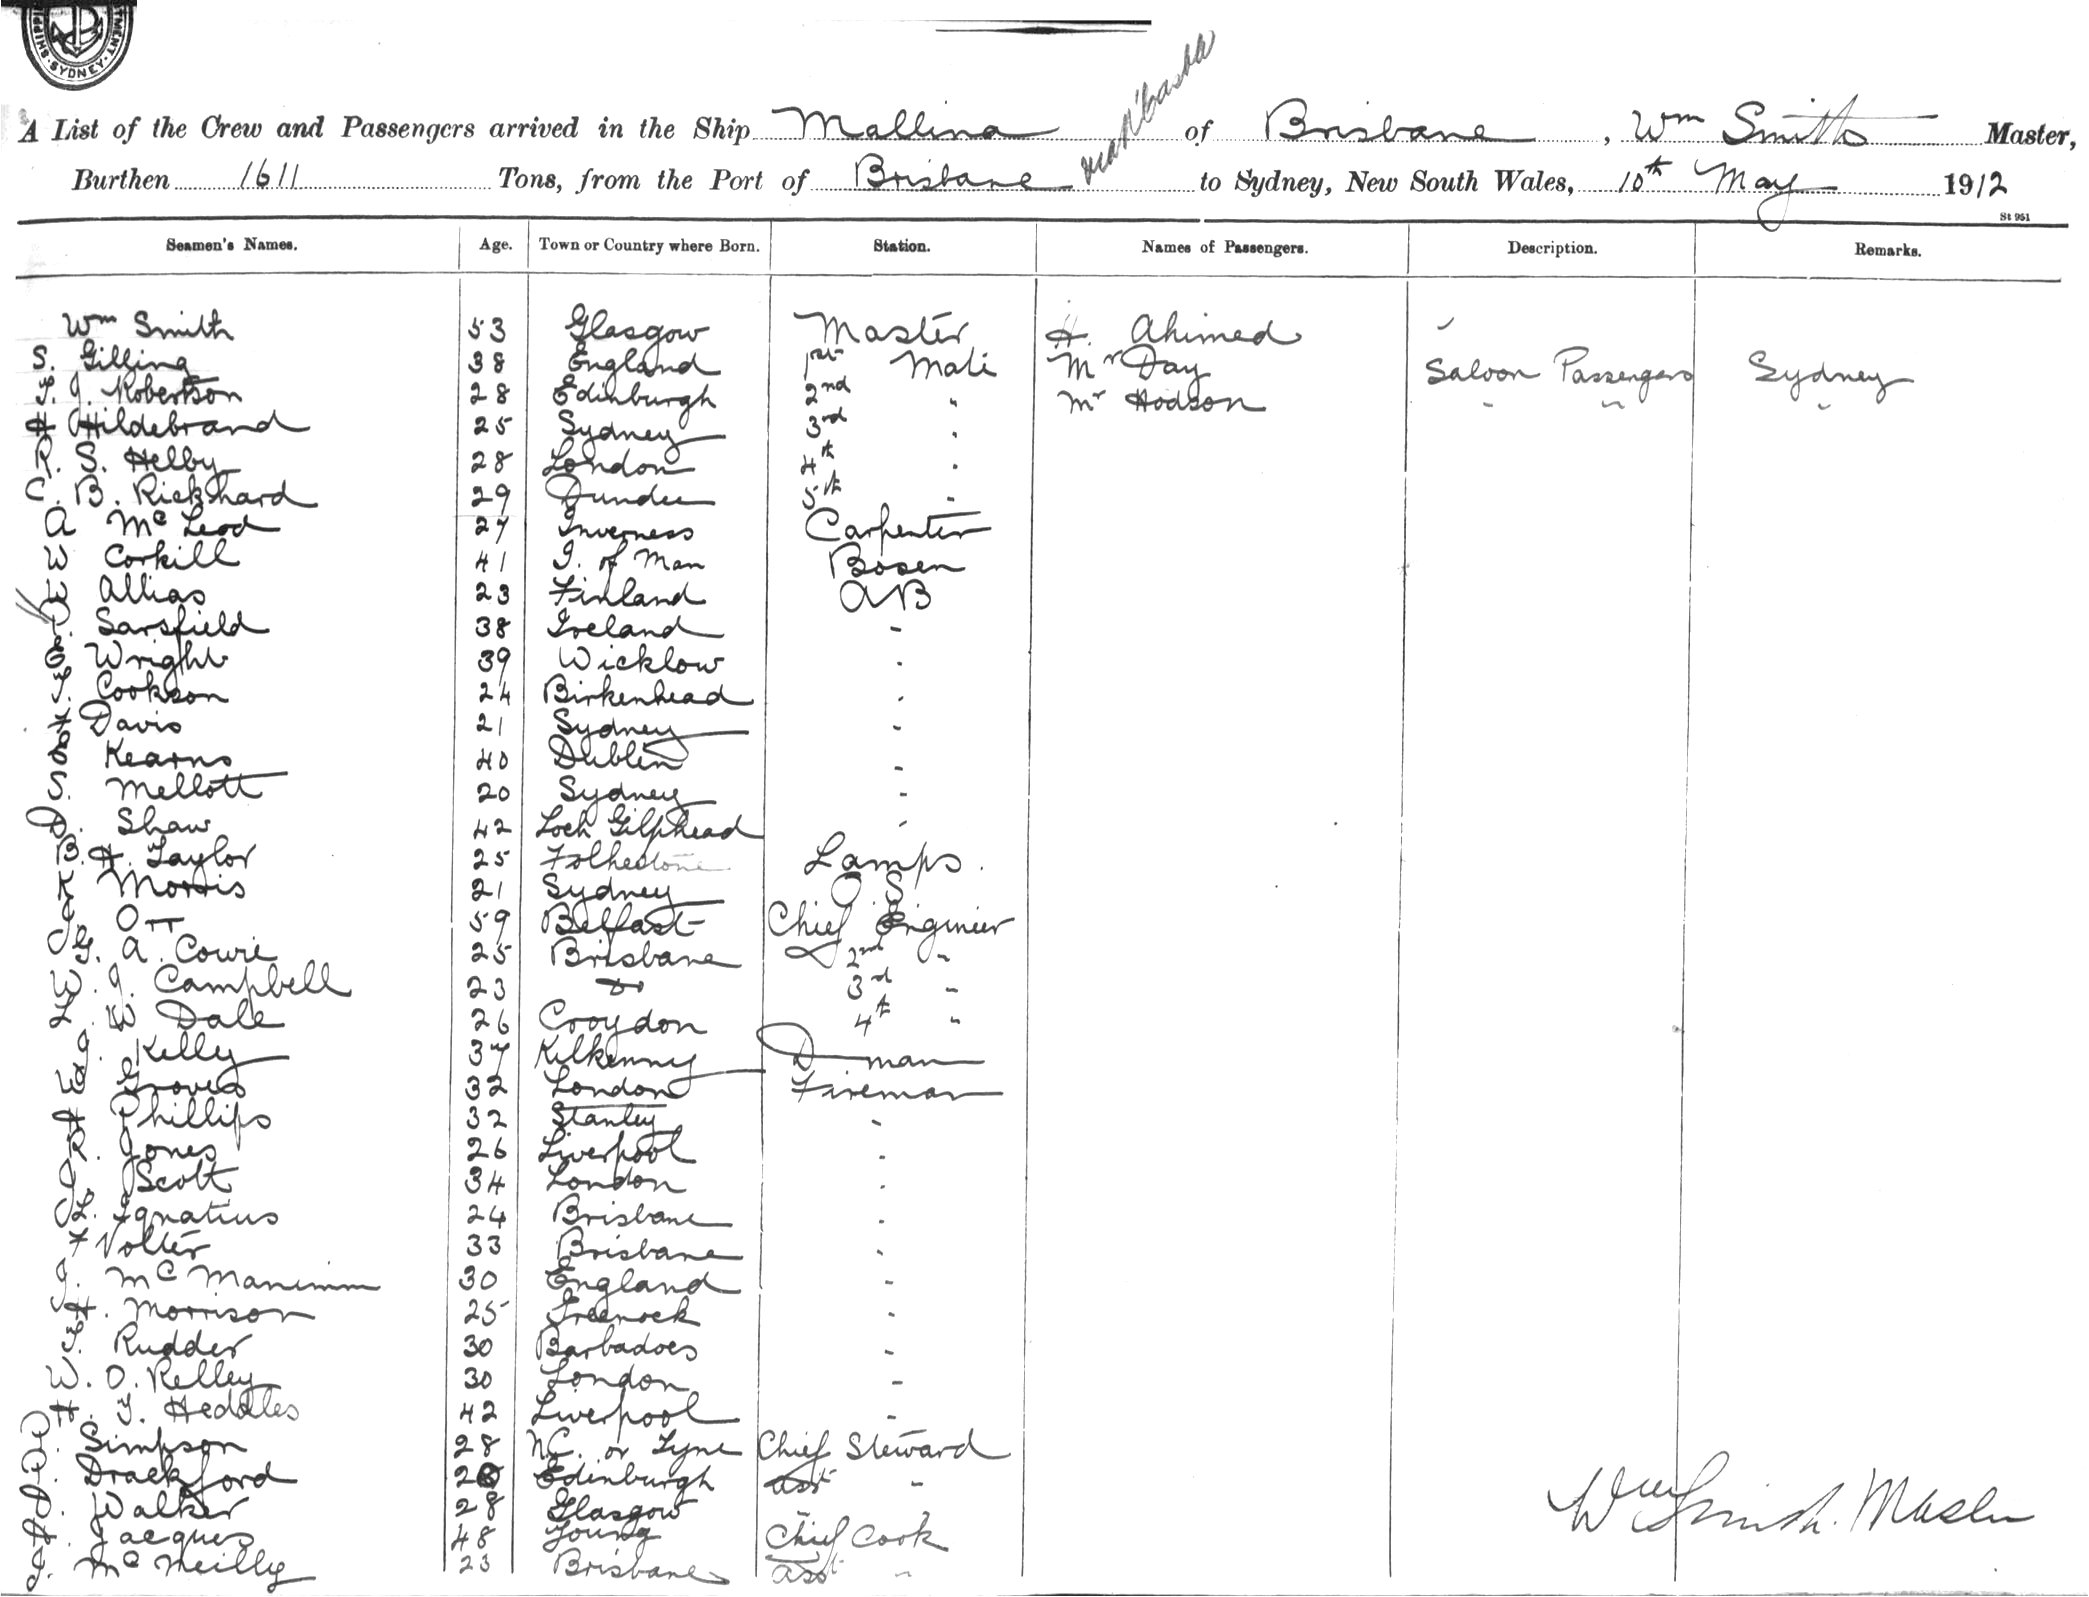 SHIPPI TMENT · SYDNEY ·
A List of the Crew and Passengers arrived in the Ship Mallina of Brisbane, Wm Smith Master,
Burthen 1611 Tons, from the Port of Brisbane to Sydney, New South Wales, 10th May 1912
St 951
Seamen's Names. Age. Town or Country where Born. Station. Names of Passengers. Description. Remarks.
Wm Smith 53 Glasgow Master H. Ahimed
S. Gilling 38 England 1st Mate Mr Day Saloon Passengers Sydney
T. J. Robertson 28 Edinburgh 2nd " Mr Hodson " " "
H Hildebrand 25 Sydney 3rd "
R. S. Helby 28 London 4th "
C. B. Rickhard 29 Dundee 5th "
A McLeod 27 Inverness Carpenter
W Corkill 41 I. of Man Bosen
E Allias 23 Finland AB
Sarsfield 38 Ireland "
E Wright 39 Wicklow "
T. Cookson 24 Birkenhead "
Davis 21 Sydney "
Kearns 40 Dublin "
S. Mellott 20 Sydney "
D. Shaw 42 Loch Gilphead "
B. H. Taylor 25 Folkestone Lamps.
K Morris 21 Sydney O S
J Orr 59 Belfast Chief Engineer
G. A. Cowie 25 Brisbane 2nd "
W. J. Campbell 23 Do 3rd "
L. W Dale 26 Croydon 4th "
J. Kelly 37 Kilkenny D man
E Groves 32 London Fireman
H Phillips 32 Stanley "
R. Jones 26 Liverpool "
J. Scott 34 London "
L. Ignatius 24 Brisbane "
F Volter 33 Brisbane "
J. McManimm 30 England "
H. Morrison 25 Greenock "
T. Rudder 30 Barbadoes "
W. O. Kelley 30 London "
H. T. Heddles 42 Liverpool "
Simpson 28 N.C. on Tyne Chief Steward
Drackford 28 Edinburgh asst "
D. Walker 28 Glasgow "
H. Jacques 48 Young Chief Cook
J. McNeilly 23 Brisbane asst "
Wm Smith. Master